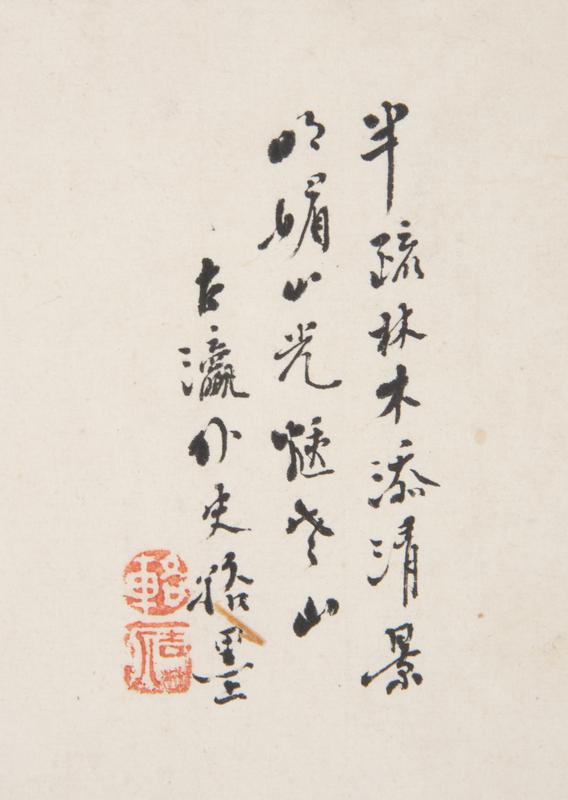 半疏林木添清景
明媚山光山
古瀛外史墨